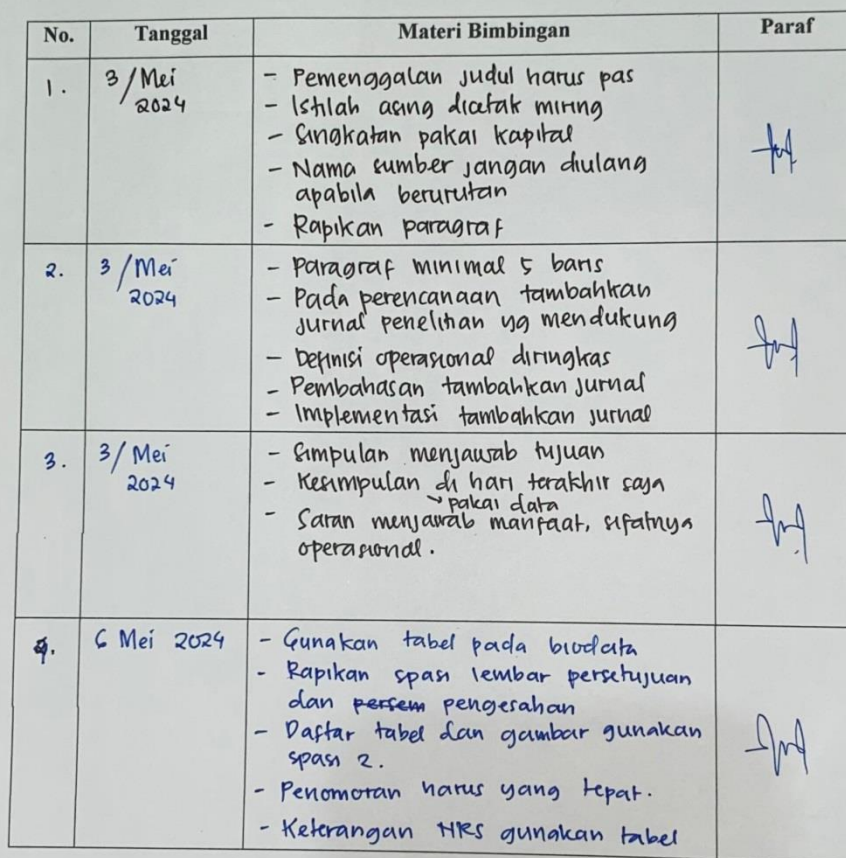 No. Tanggal Materi Bimbingan Paraf
1. 3/Mei 2024 - Pemenggalan judul harus pas
- Istilah asing dicetak miring
- Singkatan pakai kapital
- Nama sumber jangan diulang
apabila berurutan
- Rapikan paragraf
2. 3/Mei 2024 - Paragraf minimal 5 baris
- Pada perencanaan tambahkan
jurnal penelitian yg mendukung
- Definisi operasional diringkas
- Pembahasan tambahkan jurnal
- Implementasi tambahkan jurnal
3. 3/Mei 2024 - Simpulan menjawab tujuan
- Kesimpulan di hari terakhir saja
→ pakai data
- Saran menjawab manfaat, sifatnya
operasional.
4. 6 Mei 2024 - Gunakan tabel pada biodata
- Rapikan spasi lembar persetujuan
dan persem pengesahan
- Daftar tabel dan gambar gunakan
spasi 2.
- Penomoran harus yang tepat.
- Keterangan NRS gunakan tabel